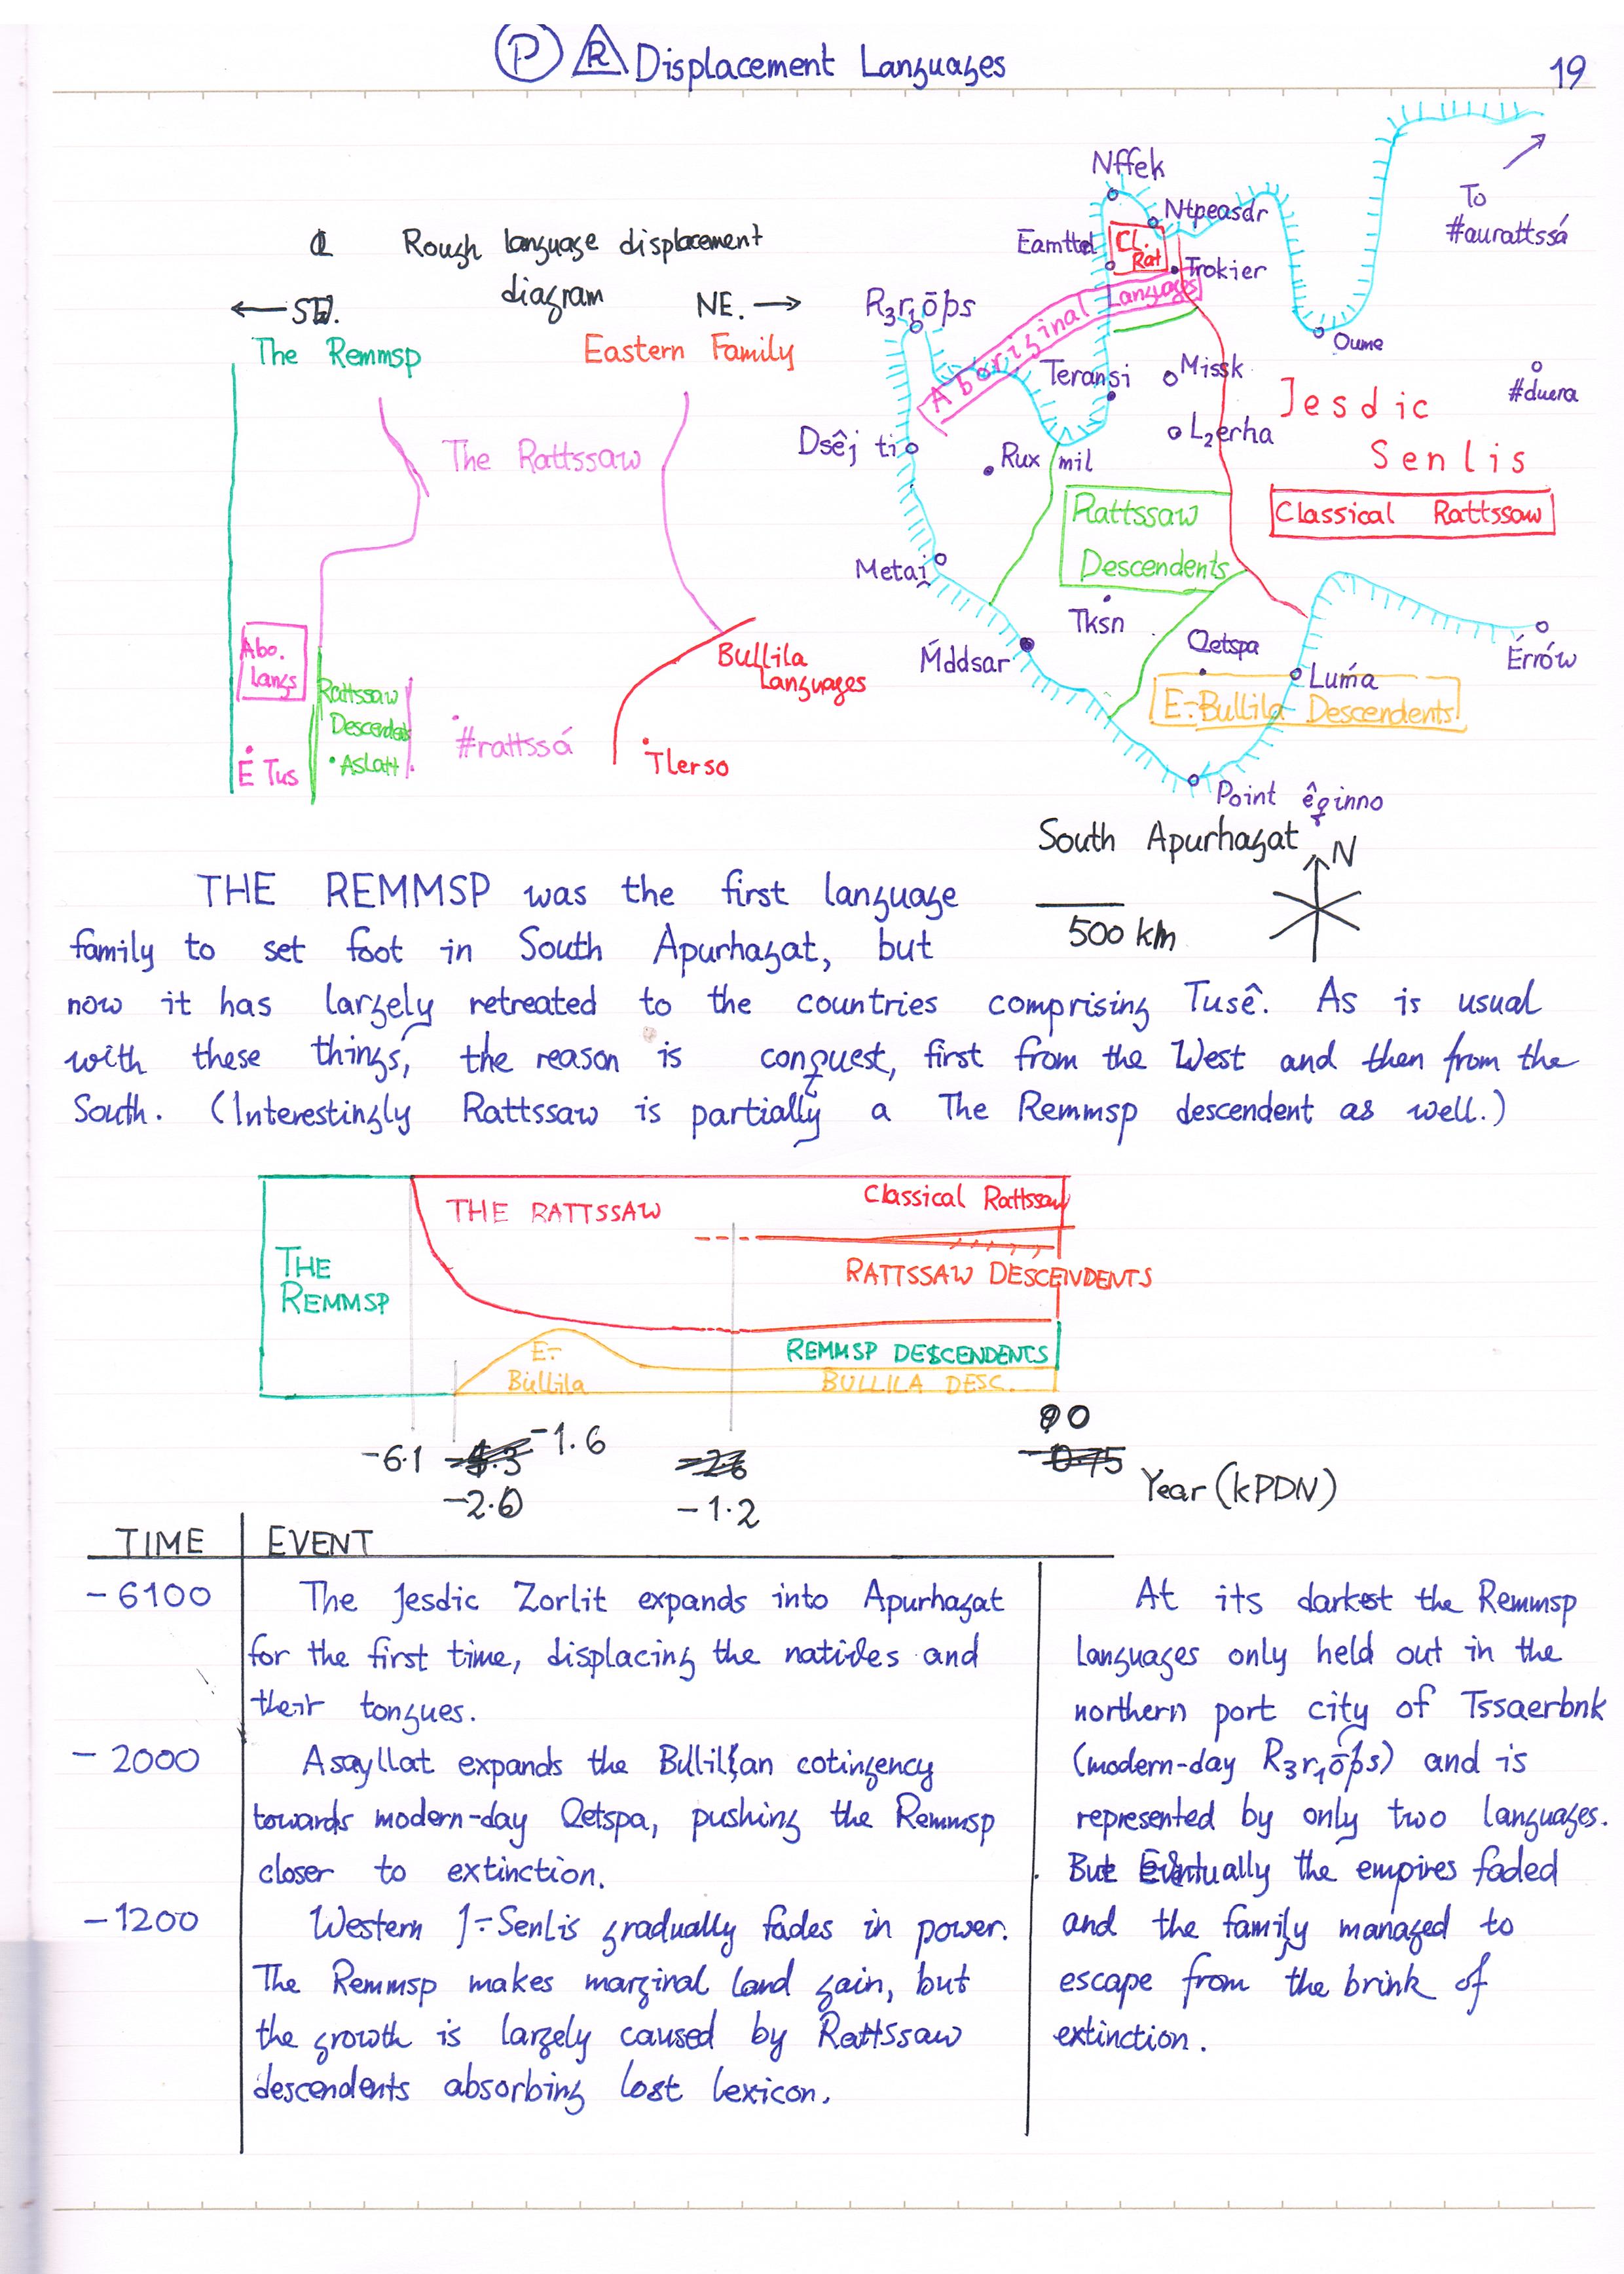 P R Displacement Languages
19
Rough language displacement
diagram
NE.
The Remmsp
Eastern Family
The Rattssaw
Abo.
langs
Rattssaw
Descendents
É Tus
Aslatt
#rattssá
Bullila
Languages
Tlerso
Nffek
Ntpeasdr
To
#aurattssá
Eamttel
Cl.
Rat
Trokier
Aboriginal Languages
R₃r₁ōps
Oume
Teransi
Missk
#duera
Jesdic
Senlis
L₂erha
Dsêj ti
Rux mil
Rattssaw
Descendents
Classical Rattssaw
Metai
Tksn
Ḿddsar
Qetspa
Érrów
Luḿa
E-Bullila Descendents
Point êginno
South Apurhagat
N
500 km
THE REMMSP was the first language
family to set foot in South Apurhagat, but
now it has largely retreated to the countries comprising Tusê. As is usual
with these things, the reason is conquest, first from the West and then from the
South. (Interestingly Rattssaw is partially a The Remmsp descendent as well.)
THE
REMMSP
THE RATTSSAW
Classical Rattssaw
RATTSSAW DESCENDENTS
E-
Bullila
REMMSP DESCENDENTS
BULLILA DESC.
0
-6.1
-1.6
-2.6
-1.2
Year (kPDN)
TIME
EVENT
-6100
The Jesdic Zorlit expands into Apurhagat
for the first time, displacing the natives and
their tongues.
-2000
Asayllat expands the Bullilan cotingency
towards modern-day Qetspa, pushing the Remmsp
closer to extinction.
-1200
Western J-Senlis gradually fades in power.
The Remmsp makes marginal land gain, but
the growth is largely caused by Rattssaw
descendents absorbing lost lexicon.
At its darkest the Remmsp
languages only held out in the
northern port city of Tssaerbnk
(modern-day R₃r₁ōps) and is
represented by only two languages.
But Eventually the empires faded
and the family managed to
escape from the brink of
extinction.